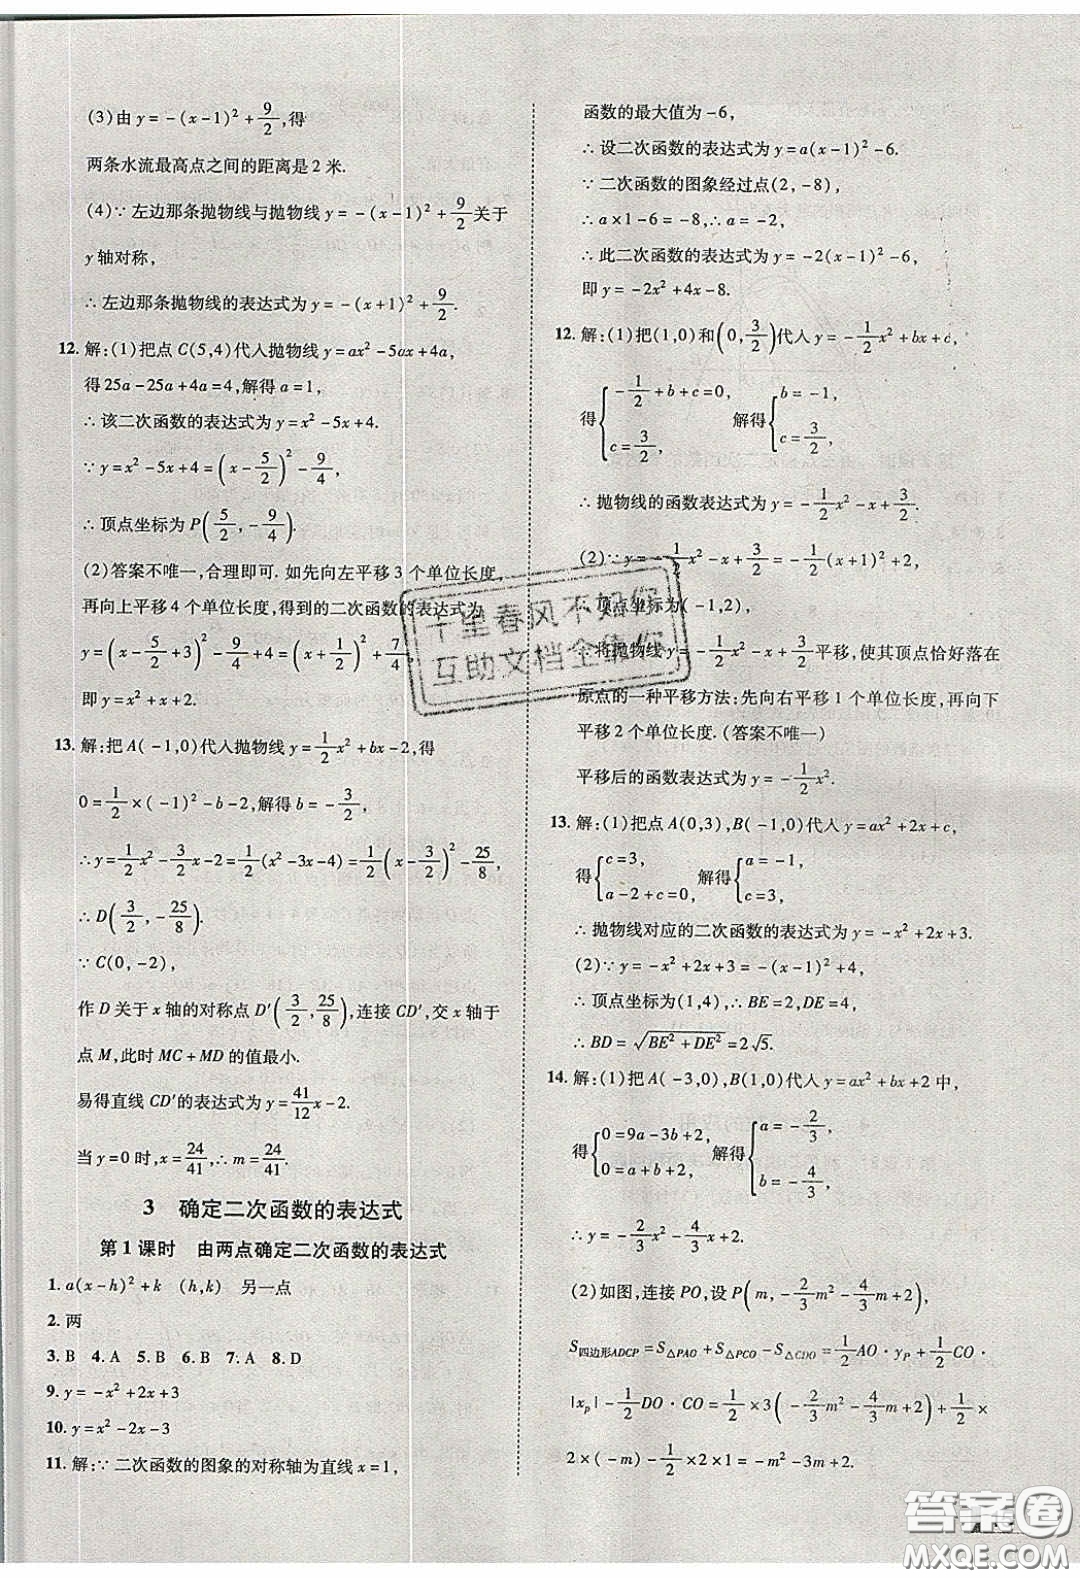 (3)由 y=-(x-1)²+9/2,得
两条水流最高点之间的距离是2米.
(4)∵左边那条抛物线与抛物线 y=-(x-1)²+9/2关于
y轴对称,
∴左边那条抛物线的表达式为 y=-(x+1)²+9/2.
12. 解:(1)把点C(5,4)代入抛物线 y=ax²-5ax+4a,
得 25a-25a+4a=4,解得 a=1,
∴该二次函数的表达式为 y=x²-5x+4.
∵y=x²-5x+4=(x-5/2)²-9/4,
∴顶点坐标为 P(5/2,-9/4).
(2)答案不唯一,合理即可.如先向左平移3个单位长度,
再向上平移4个单位长度,得到的二次函数的表达式为
y=(x-5/2+3)²-9/4+4=(x+1/2)²+7/4,
即 y=x²+x+2.
13. 解:把A(-1,0)代入抛物线 y=1/2x²+bx-2,得
0=1/2×(-1)²-b-2,解得 b=-3/2,
∴y=1/2x²-3/2x-2=1/2(x²-3x-4)=1/2(x-3/2)²-25/8,
∴D(3/2,-25/8).
∵C(0,-2),
作D关于x轴的对称点D′(3/2,25/8),连接CD′,交x轴于
点M,此时MC+MD的值最小.
易得直线CD′的表达式为 y=41/12x-2.
当 y=0时,x=24/41,∴m=24/41.
3 确定二次函数的表达式
第1课时 由两点确定二次函数的表达式
1. a(x-h)²+k (h,k) 另一点
2. 两
3. B 4. A 5. B 6. B 7. A 8. D
9. y=-x²+2x+3
10. y=x²-2x-3
11. 解:∵二次函数的图象的对称轴为直线 x=1,
函数的最大值为-6,
∴设二次函数的表达式为 y=a(x-1)²-6.
∵二次函数的图象经过点(2,-8),
∴a×1-6=-8,∴a=-2,
∴此二次函数的表达式为 y=-2(x-1)²-6,
即 y=-2x²+4x-8.
12. 解:(1)把(1,0)和(0,3/2)代入 y=-1/2x²+bx+c,
得{-1/2+b+c=0, c=3/2, 解得{b=-1, c=3/2.
∴抛物线的函数表达式为 y=-1/2x²-x+3/2.
(2)∵y=-1/2x²-x+3/2=-1/2(x+1)²+2,
∴顶点坐标为(-1,2),
∴将抛物线 y=-1/2x²-x+3/2平移,使其顶点恰好落在
原点的一种平移方法:先向右平移1个单位长度,再向下
平移2个单位长度.(答案不唯一)
平移后的函数表达式为 y=-1/2x².
13. 解:(1)把点A(0,3),B(-1,0)代入 y=ax²+2x+c,
得{c=3, a-2+c=0, 解得{a=-1, c=3,
∴抛物线对应的二次函数的表达式为 y=-x²+2x+3.
(2)∵y=-x²+2x+3=-(x-1)²+4,
∴顶点坐标为(1,4),∴BE=2,DE=4,
∴BD=√(BE²+DE²)=2√5.
14. 解:(1)把A(-3,0),B(1,0)代入 y=ax²+bx+2中,
得{0=9a-3b+2, 0=a+b+2, 解得{a=-2/3, b=-4/3,
∴y=-2/3x²-4/3x+2.
(2)如图,连接PO,设P(m,-2/3m²-4/3m+2),
S四边形ADCP=S△PAO+S△PCO-S△CDO=1/2AO·yP+1/2CO·
|xP|-1/2DO·CO=1/2×3(-2/3m²-4/3m+2)+1/2×
2×(-m)-1/2×2×1=-m²-3m+2.
千里春风不如你
互助文档全靠你
答案圈
MXQE.COM